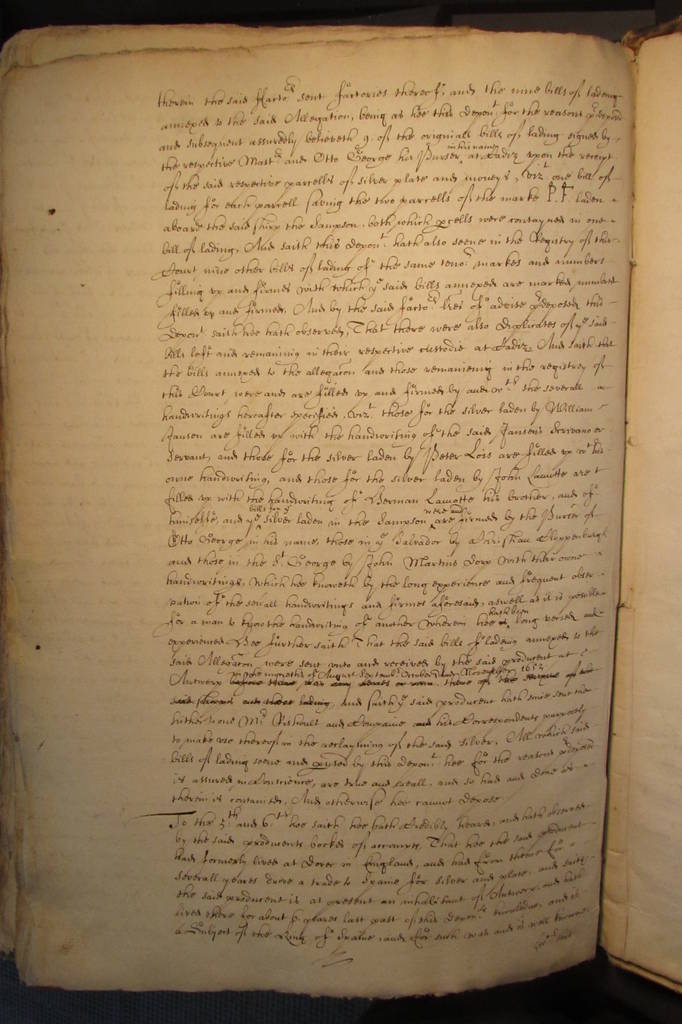 therein the said ffacto:rs sent factories thereof; and the nine bills of lading
annexed to the said Allegation, being as hee this depon:t for the reasons predeposed
and subsequent assuredly beleeveth 9. of the originall bills of lading signed by
the respective Mast:rs and Otto George his Purser in his name at Cadiz upon the receipt
of the said respective parcells of silver plate and moneys, viz:t one bill of
lading for each parcell saving the two parcells of the marke P.P laden
aboard the said shipp the Sampson both which pcells were contayned in one
bill of lading. And saith this depon:t hath also seene in the Registry of this
Court nine other bills of lading of the same teno:r markes and numbers
filling up and firmes with which y:e said bills annexed are marked, numbred
filled up and firmed. And by the said facto:rs lres of advise predeposed this
depon:t saith hee hath observed, That there were also duplicates of y:e said
bills left and remaining in their respective custodie at Cadiz. And saith that
the bills annexed to the allegacon and those remaineing in the registry of
this Court, were and are filled up and firmed by and w:th the severall
handwritings hereafter specified, viz:t those for the silver laden by William
Jansen are filled up with the handwriting of the said Jansens
servant, and those for the silver laden by Peter Lois are filled up w:th his
owne handwriting, and those for the silver laden by John Lamotte are
filled up with the handwriting of Herman Lamotte his brother, and of
himselfe, and y:e bills for y:e silver laden in the Sampson were and are firmed by the Purser of
Otto George in his name, those in y:e Salvador by Christian Cloppenburgh
and those in the S:t George by John Martins Dorp with their owne
handwritings, which hee knoweth by the long experience and frequent obser-
vation of the severall handwritings and firmes aforesaid, aswell as it is possible
for a man to know the handwriting of another wherein hee hath bin long versed and
experienced. Hee further saith That the said bills of lading annexed to the
said Allegacon were sent unto and received by the said producent at
Antwerp in the moneths of August September October and November 1652
And saith y:e said producent hath since sent the
hither to one M:r and Companie his Correspondents purposely
to make use thereof in the reclayming of the said silver. All which said
bills of lading seene and by this depon:t hee for the reasons predeposed
is assured in Conscience, are true and reall, and so had and done as
therein is contained. And otherwise hee cannot depose.
To the 5:th and 6:th hee saith hee hath Credibly heard, and hath observed
by the said producents bookes of accounts, That hee the said producent
had formerly lived at Dover in England, and had from thence for
severall yeares drove a trade to Spaine for silver and plate, and saith
the said producent is at present an inhabitant of Antwerp, and hath
lived there for about 6 yeares last past of this depon:ts knowledge, and is
a Subject of the King of Spaine, and for such was and is well knowne